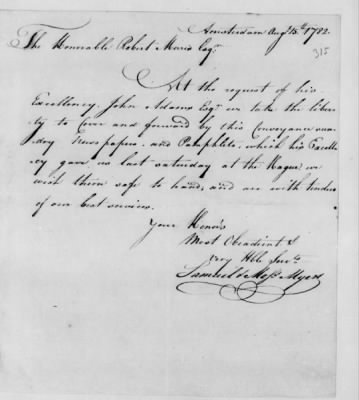 Amsterdam Augt 15th 1782.
315
The Honorable Robert Morris Esqr
At the request of his
Excellency John Adams Esqr we take the liber
ty to Cover and forward by this Conveyance sun
dry Newspapers, and Pamphlets, which his Excelle
ncy gave us last saturday at the Hague, we
wish them safe to hand, and are with tenders
of our best services.
Your Honor's
Most Obedient &
very Hble Servts
Samuel & Mos. Myers